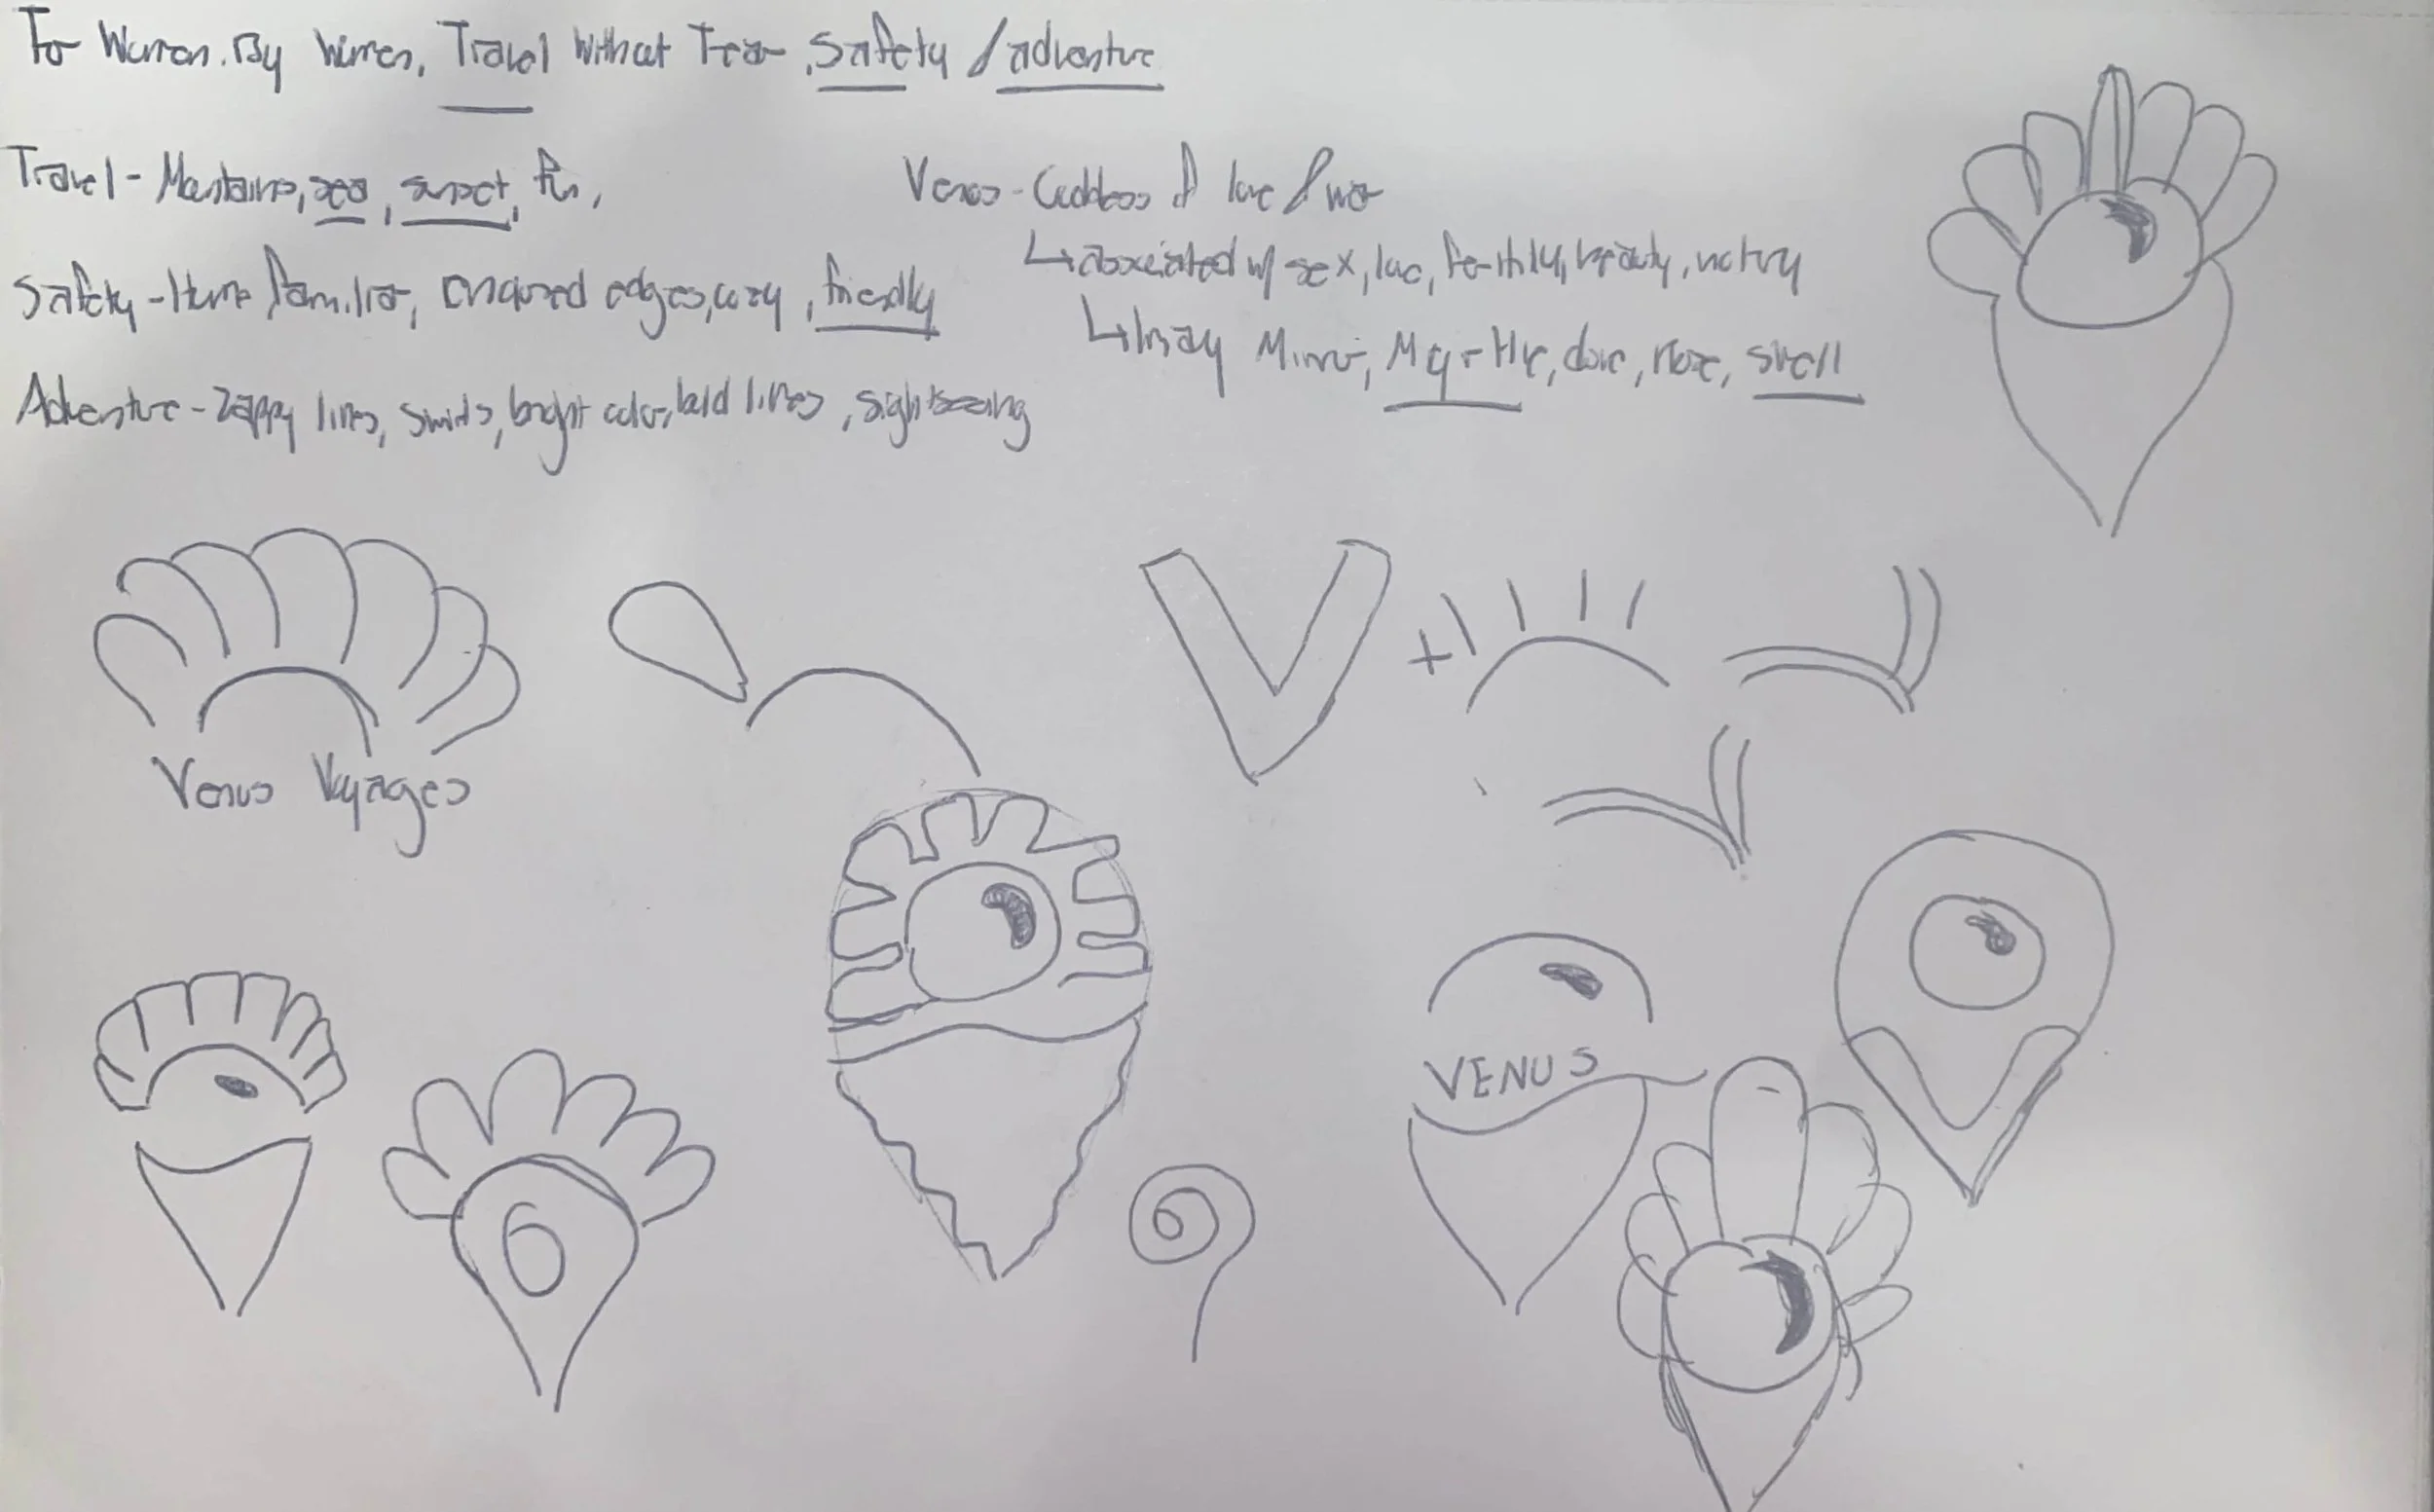 For Women. By Women, Travel Without Fear, Safety / adventure
Travel - Mountains, sea, sunset, fun,
Venus - Goddess of love / war
Safety - Home, familiar, edges, cozy, friendly
↳ associated w/ sex, luv, fertility, beauty, victory
↳ Mirror, Myrtle, dove, rose, shell
Adventure - Zappy lines, swirls, bright color, bold lines, sightseeing
V + 
Venus Voyages
VENUS
6